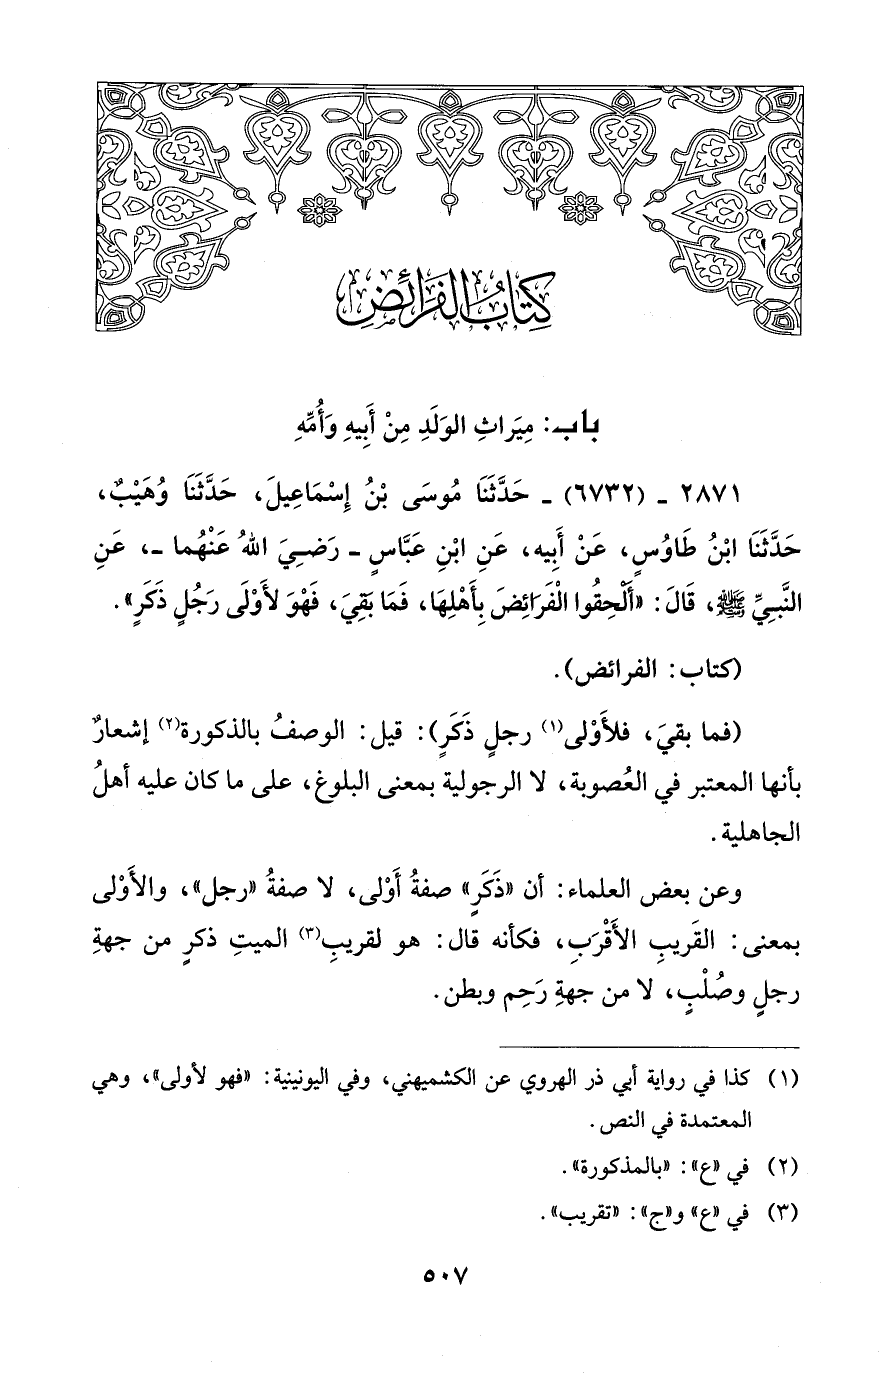 كِتَابُ الفَرَائِضِ
باب: مِيَراثِ الوَلَدِ مِنْ أَبِيهِ وَأُمِّهِ
٢٨٧١ ـ (٦٧٣٢) ـ حَدَّثَنَا مُوسَى بْنُ إِسْمَاعِيلَ، حَدَّثَنَا وُهَيْبٌ،
حَدَّثَنَا ابْنُ طَاوُسٍ، عَنْ أَبِيه، عَنِ ابْنِ عَبَّاسٍ ـ رَضيَ اللهُ عَنْهُما ـ، عَنِ
النَّبِيِّ ﷺ، قَالَ: «أَلْحِقُوا الْفَرَائِضَ بِأَهْلِهَا، فَمَا بَقِيَ، فَهْوَ لأَوْلَى رَجُلٍ ذَكَرٍ».
(كتاب: الفرائض).
(فما بقيَ، فلأَوْلى(١) رجلٍ ذَكَرٍ): قيل: الوصفُ بالذكورة(٢) إشعارٌ
بأنها المعتبر في العُصوبة، لا الرجولية بمعنى البلوغ، على ما كان عليه أهلُ
الجاهلية.
وعن بعض العلماء: أن «ذَكَرٍ» صفةُ أَوْلى، لا صفةُ «رجل»، والأَوْلى
بمعنى: القَريبِ الأَقْرَبِ، فكأنه قال: هو لقريبِ(٣) الميتِ ذكرٍ من جهةِ
رجلٍ وصُلْبٍ، لا من جهةِ رَحِم وبطن.
(١) كذا في رواية أبي ذر الهروي عن الكشميهني، وفي اليونينية: «فهو لأولى»، وهي
المعتمدة في النص.
(٢) في «ع»: «بالمذكورة».
(٣) في «ع» و«ج»: «تقريب».
٥٠٧